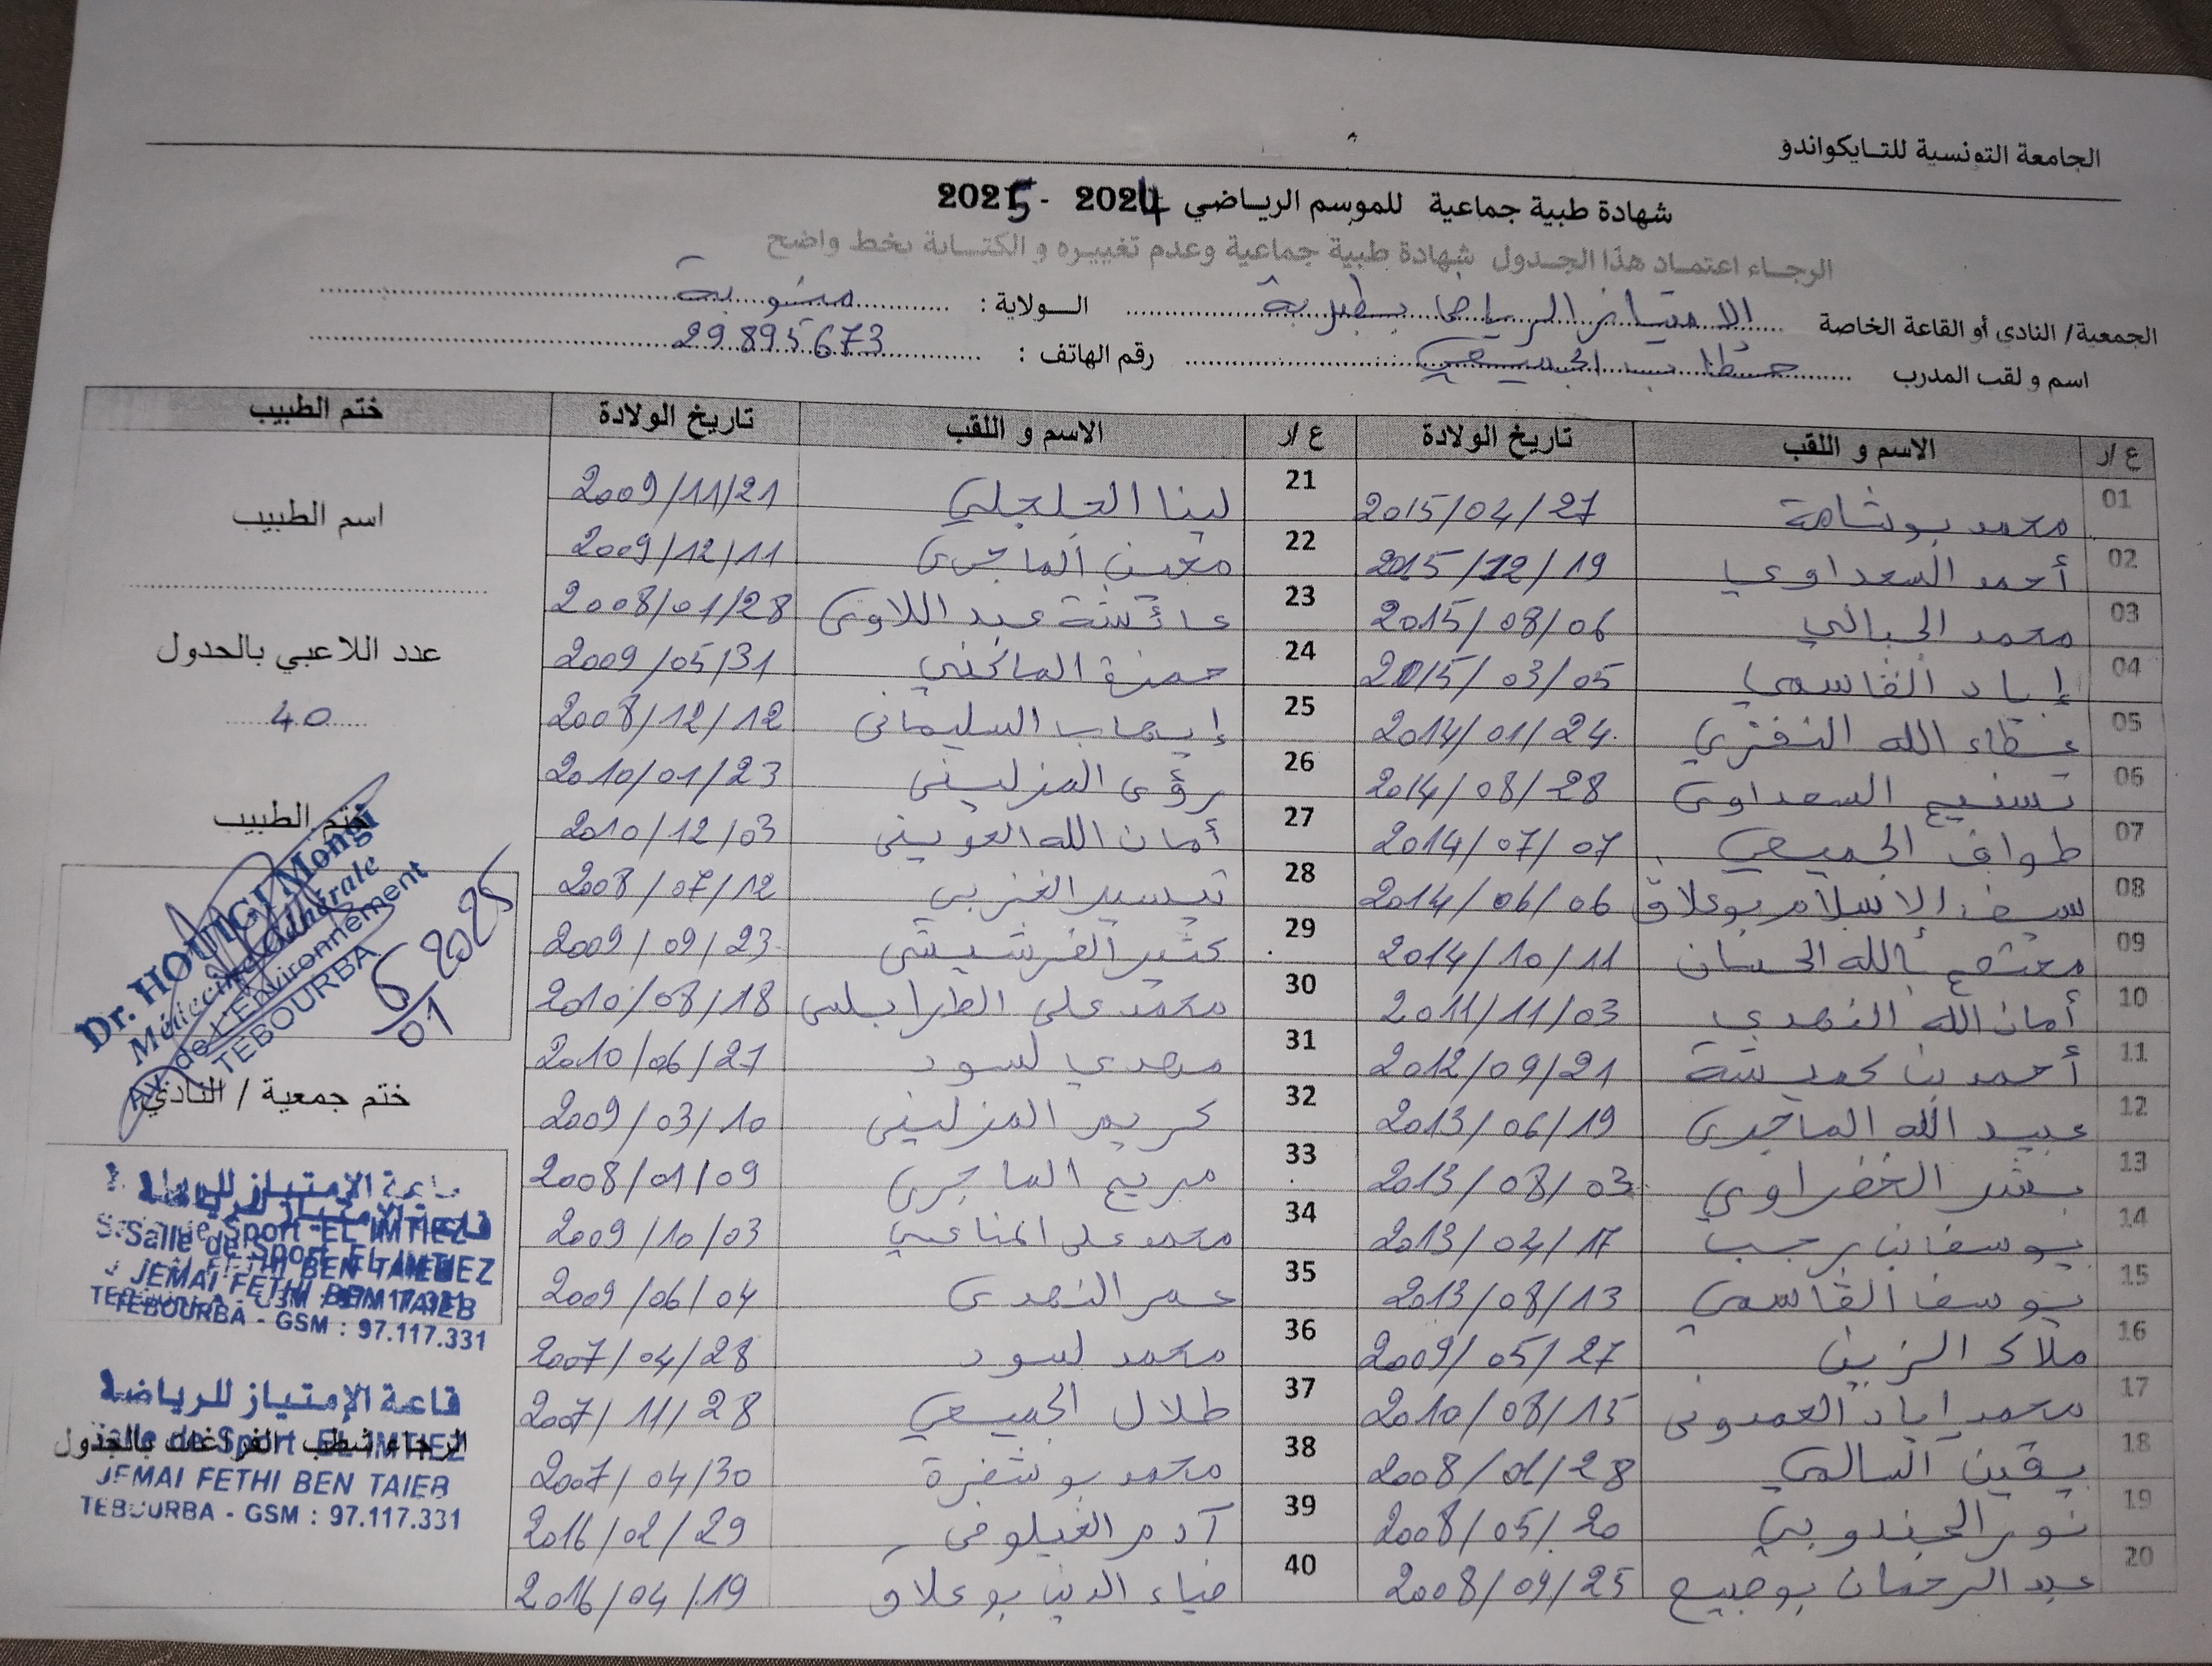 الجامعة التونسية للتايكواندو
شهادة طبية جماعية للموسم الرياضي 2024 - 2025
الرجاء اعتماد هذا الجدول شهادة طبية جماعية وعدم تغييره و الكتابة بخط واضح
الجمعية/ النادي أو القاعة الخاصة الامتياز الرياضي بطبربة الولاية : منوبة
اسم و لقب المدرب الجميعي رقم الهاتف : 29895673
ع/ر الاسم و اللقب تاريخ الولادة ع/ر الاسم و اللقب تاريخ الولادة ختم الطبيب
01 محمد بوشامة 2015/04/27 21 لينا الجلجلي 2009/11/21
02 أحمد السعداوي 2015/12/19 22 معين الماجري 2009/12/11
03 محمد الجبالي 2015/08/06 23 عائشة عبد اللاوي 2008/01/28
04 إياد القاسمي 2015/03/05 24 حمزة 2009/05/31
05 عطاء الله النفزي 2014/01/24 25 إيهاب السليماني 2008/12/12
06 تسنيم السعداوي 2014/08/28 26 رؤى المنزليني 2010/01/23
07 طواف الجميعي 2014/07/07 27 أمان الله العويني 2010/12/03
08 سيف الاسلام بوعلاق 2014/06/06 28 تيسير الغزبي 2008/07/12
09 معتصم بالله 2014/10/11 29 الفرشيشي 2009/09/23
10 أمان الله النهدي 2011/11/03 30 محمد علي الطرابلسي 2010/08/18
11 أحمد بن 2012/09/21 31 مهدي لسود 2010/06/27
12 عبيد الله الماجري 2013/06/19 32 كريم المنزليني 2009/03/10
13 بشر الخضراوي 2013/08/03 33 مريم الماجري 2008/01/09
14 يوسف بن رجب 2013/04/17 34 محمد علي المناعي 2009/10/03
15 يوسف القاسمي 2013/08/13 35 عمر النهدي 2009/06/04
16 ملاك الزين 2009/05/27 36 محمد لسود 2007/04/28
17 محمد اياد العمدوني 2010/08/15 37 طلال الجميعي 2007/11/28
18 يقين السالمي 2008/01/28 38 محمد بوشفرة 2007/04/30
19 نور الجندوبي 2008/05/20 39 آدم الغيلوفي 2016/02/29
20 عبد الرحمان بوجبيع 2008/09/25 40 ضياء الدين بوعلاق 2016/04/19
اسم الطبيب
عدد اللاعبي بالجدول
40
ختم الطبيب
Dr. HOUIGI Mongi
Médecine Générale
Av. de L'Environnement
TEBOURBA
6/01 2025
ختم جمعية / النادي
قاعة الإمتياز للرياضة
Salle de Sport EL IMTIEZ
JEMAI FETHI BEN TAIEB
TEBOURBA - GSM : 97.117.331
قاعة الإمتياز للرياضة
الرجاء شطب الفراغات بالجدول
Salle de Sport EL IMTIEZ
JEMAI FETHI BEN TAIEB
TEBOURBA - GSM : 97.117.331